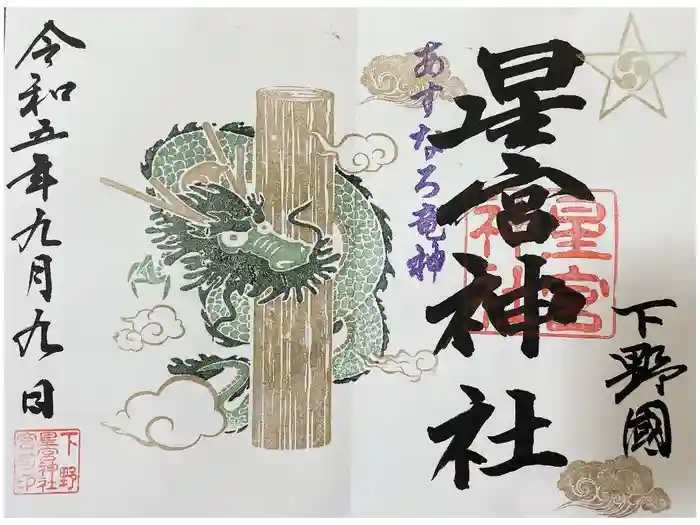 下野國
星宮神社
星宮神社
あすなろ竜神
令和五年九月九日
下野
星宮神社